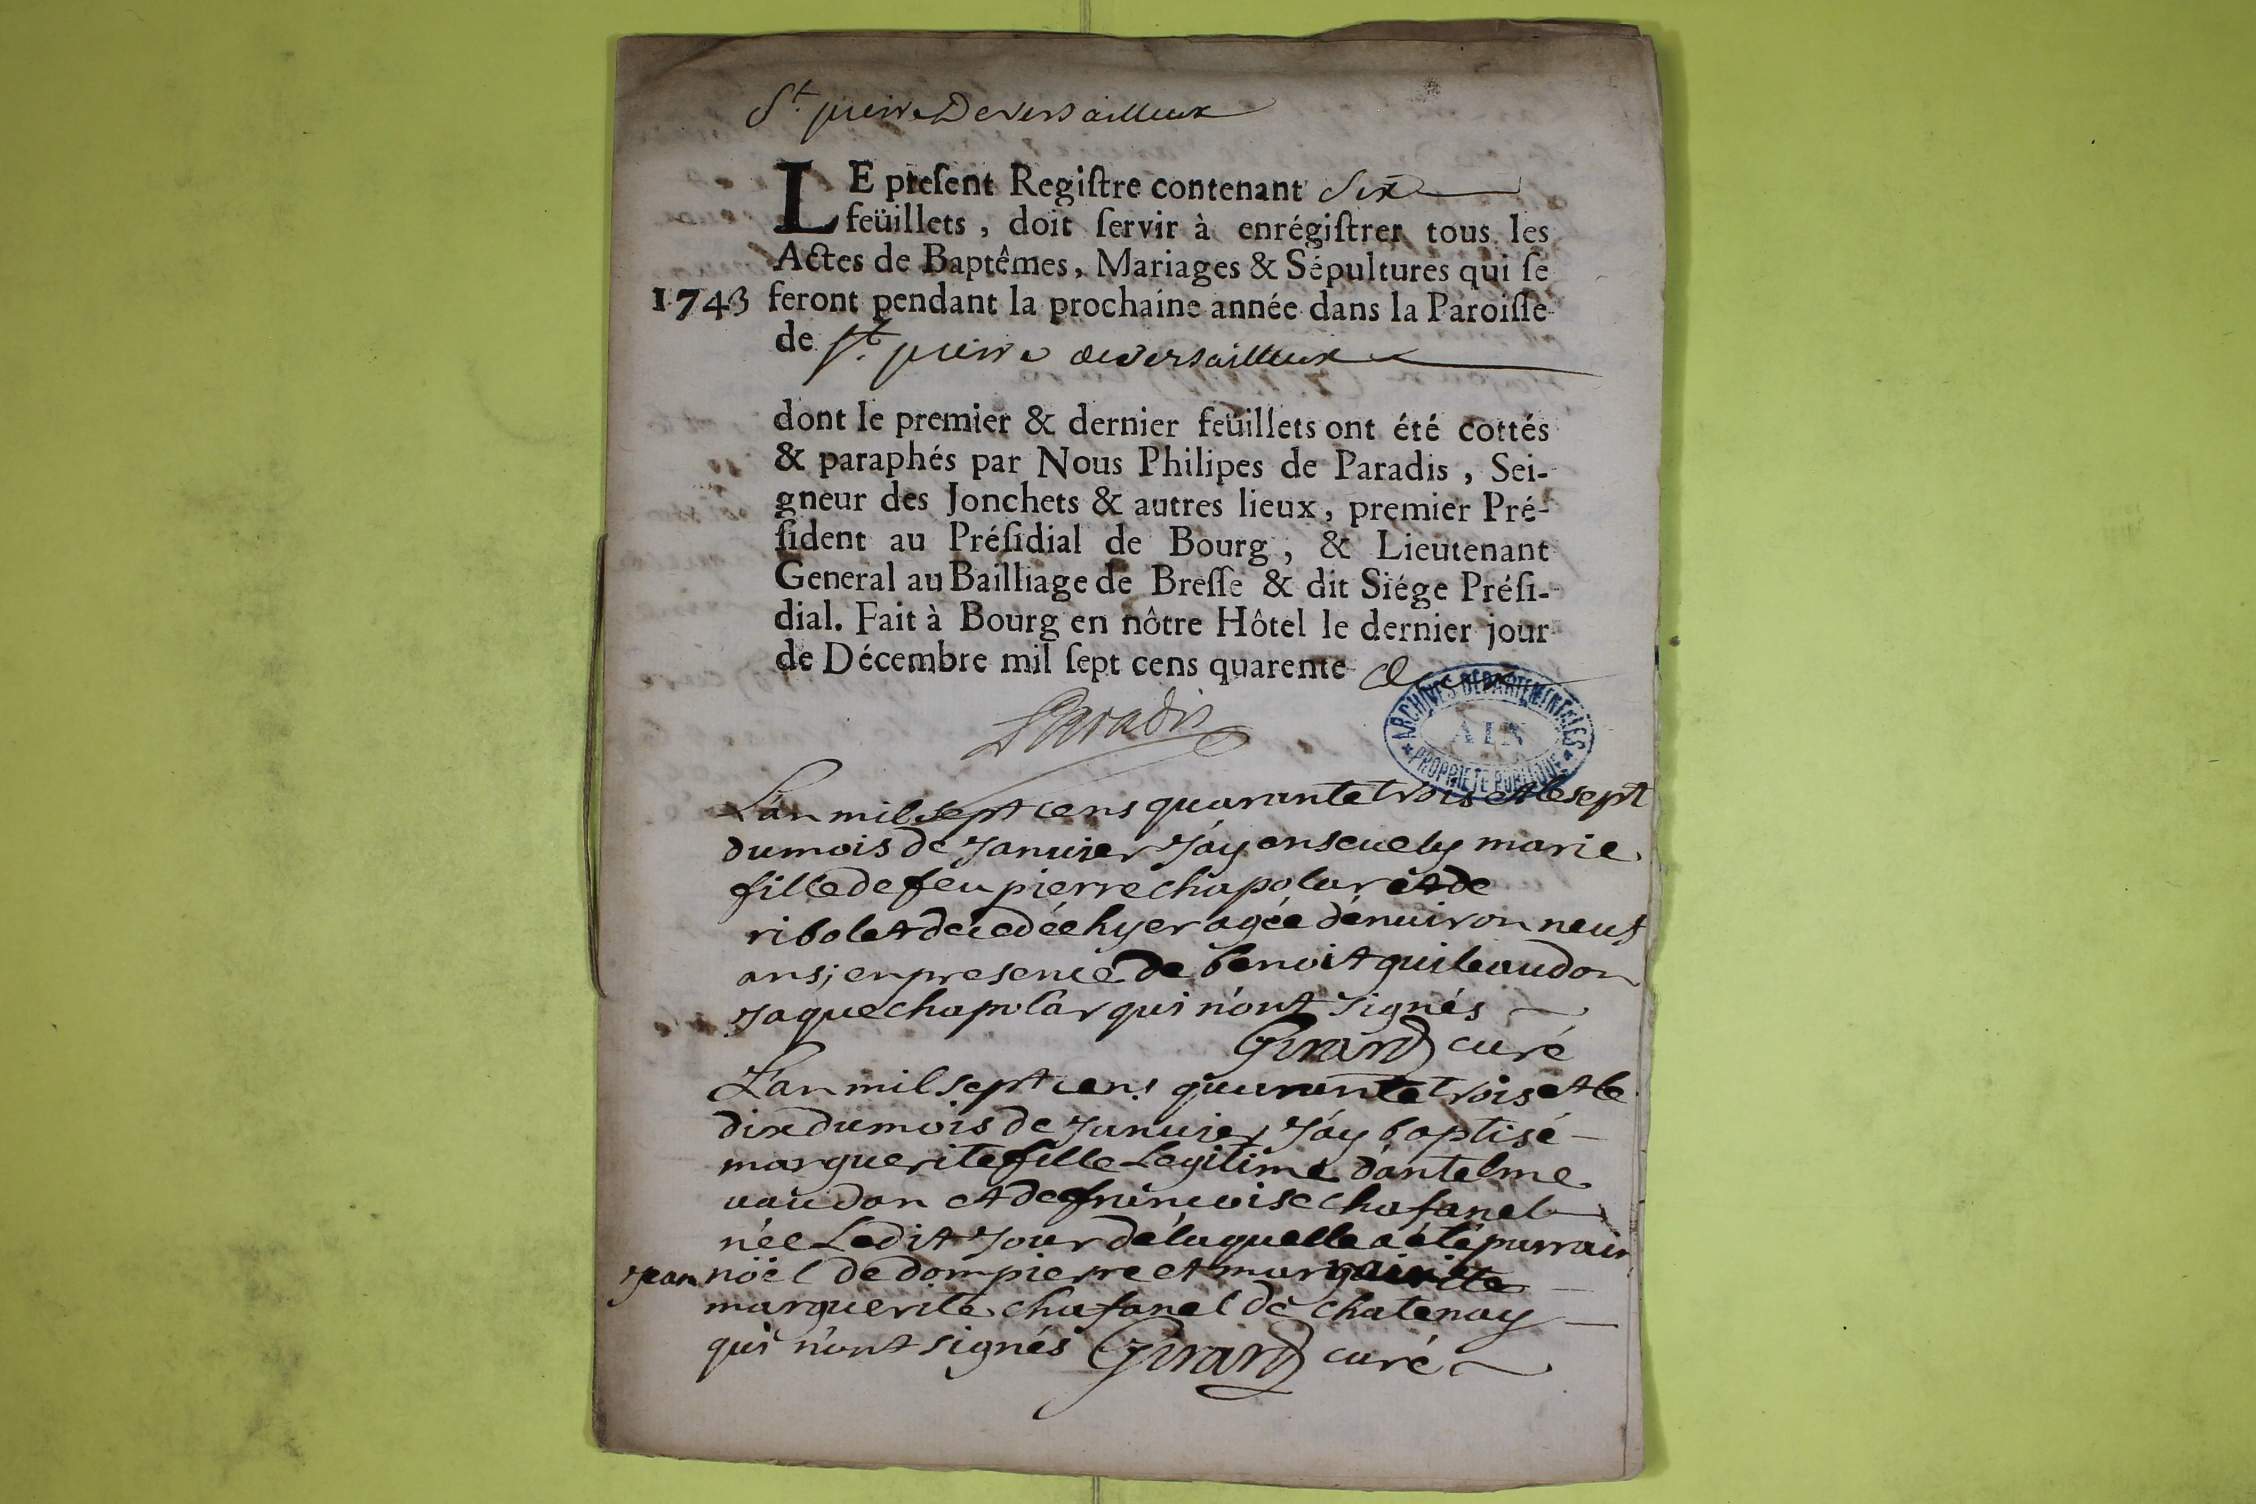 St. pierre De versailleux
LE present Registre contenant Six
feüillets, doit servir à enrégistrer tous les
Actes de Baptêmes, Mariages & Sépultures qui se
1743 feront pendant la prochaine année dans la Paroisse
de St. pierre de versailleux
dont le premier & dernier feüillets ont été cottés
& paraphés par Nous Philipes de Paradis, Sei-
gneur des Jonchets & autres lieux, premier Pré-
sident au Présidial de Bourg, & Lieutenant
General au Bailliage de Bresse & dit Siége Prési-
dial. Fait à Bourg en nôtre Hôtel le dernier jour
de Décembre mil sept cens quarente deux
Paradis
ARCHIVES DEPARTEMENTALES
AIN
PROPRIETE PUBLIQUE
L'an mil sept cens quarante trois et le sept
du mois de Janvier J'ay ensevely marie
fille de feu pierre chapolar et de
ribolet décedée hyer agée d'environ neuf
ans; en presence de benoit guileaudon
Jaque chapolar qui n'ont signés
Girard curé
L'an mil sept cens quarante trois et le
dix du mois de Janvier J'ay baptisé
marguerite fille Legitime d'antelme
vaudan et de francoise chafanel
née Ledit Jour de laquelle a été parrain
Jean noël de dompierre et marguerite
marguerite chafanel de chatenay
qui n'ont signés Girard curé